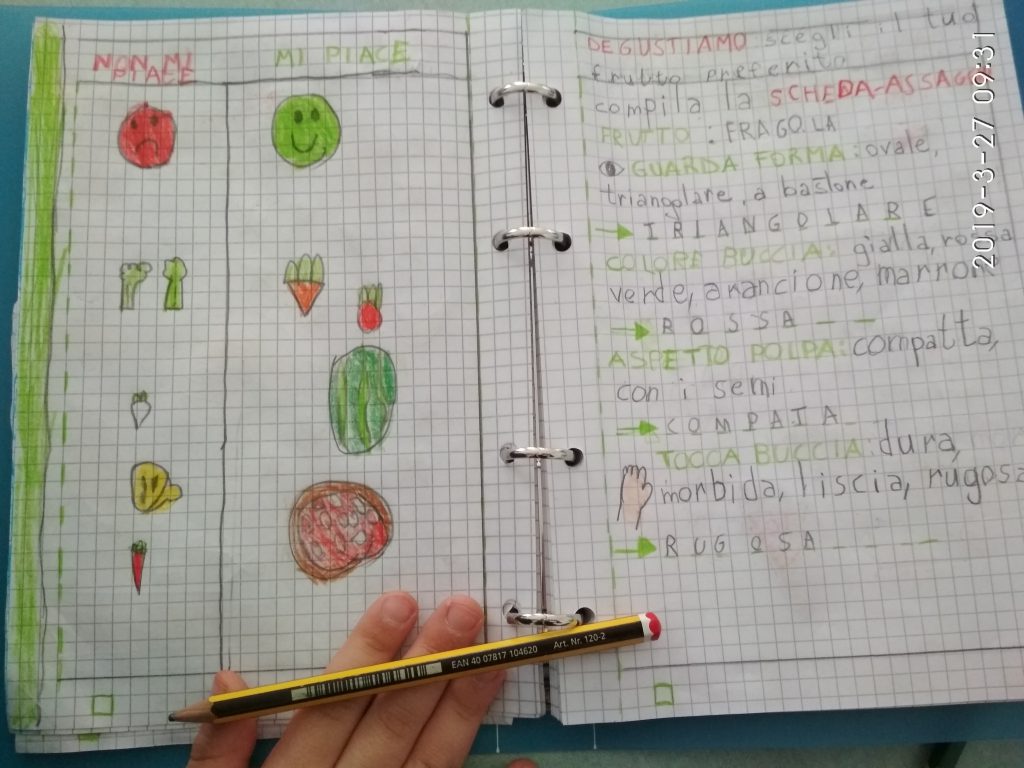 NON MI
PIACE
MI PIACE
DEGUSTIAMO scegli il tuo
frutto preferito
compila la SCHEDA-ASSAGGI
FRUTTO : FRAGOLA
GUARDA FORMA: ovale,
triangolare, a bastone
TRIANGOLARE
COLORE BUCCIA: gialla, rossa
verde, arancione, marron
ROSSA
ASPETTO POLPA: compatta,
con i semi
COMPATA
TOCCA BUCCIA: dura,
morbida, liscia, rugosa
RUGOSA
EAN 40 07817 104620 Art. Nr. 120-2
2019-3-27 09:31